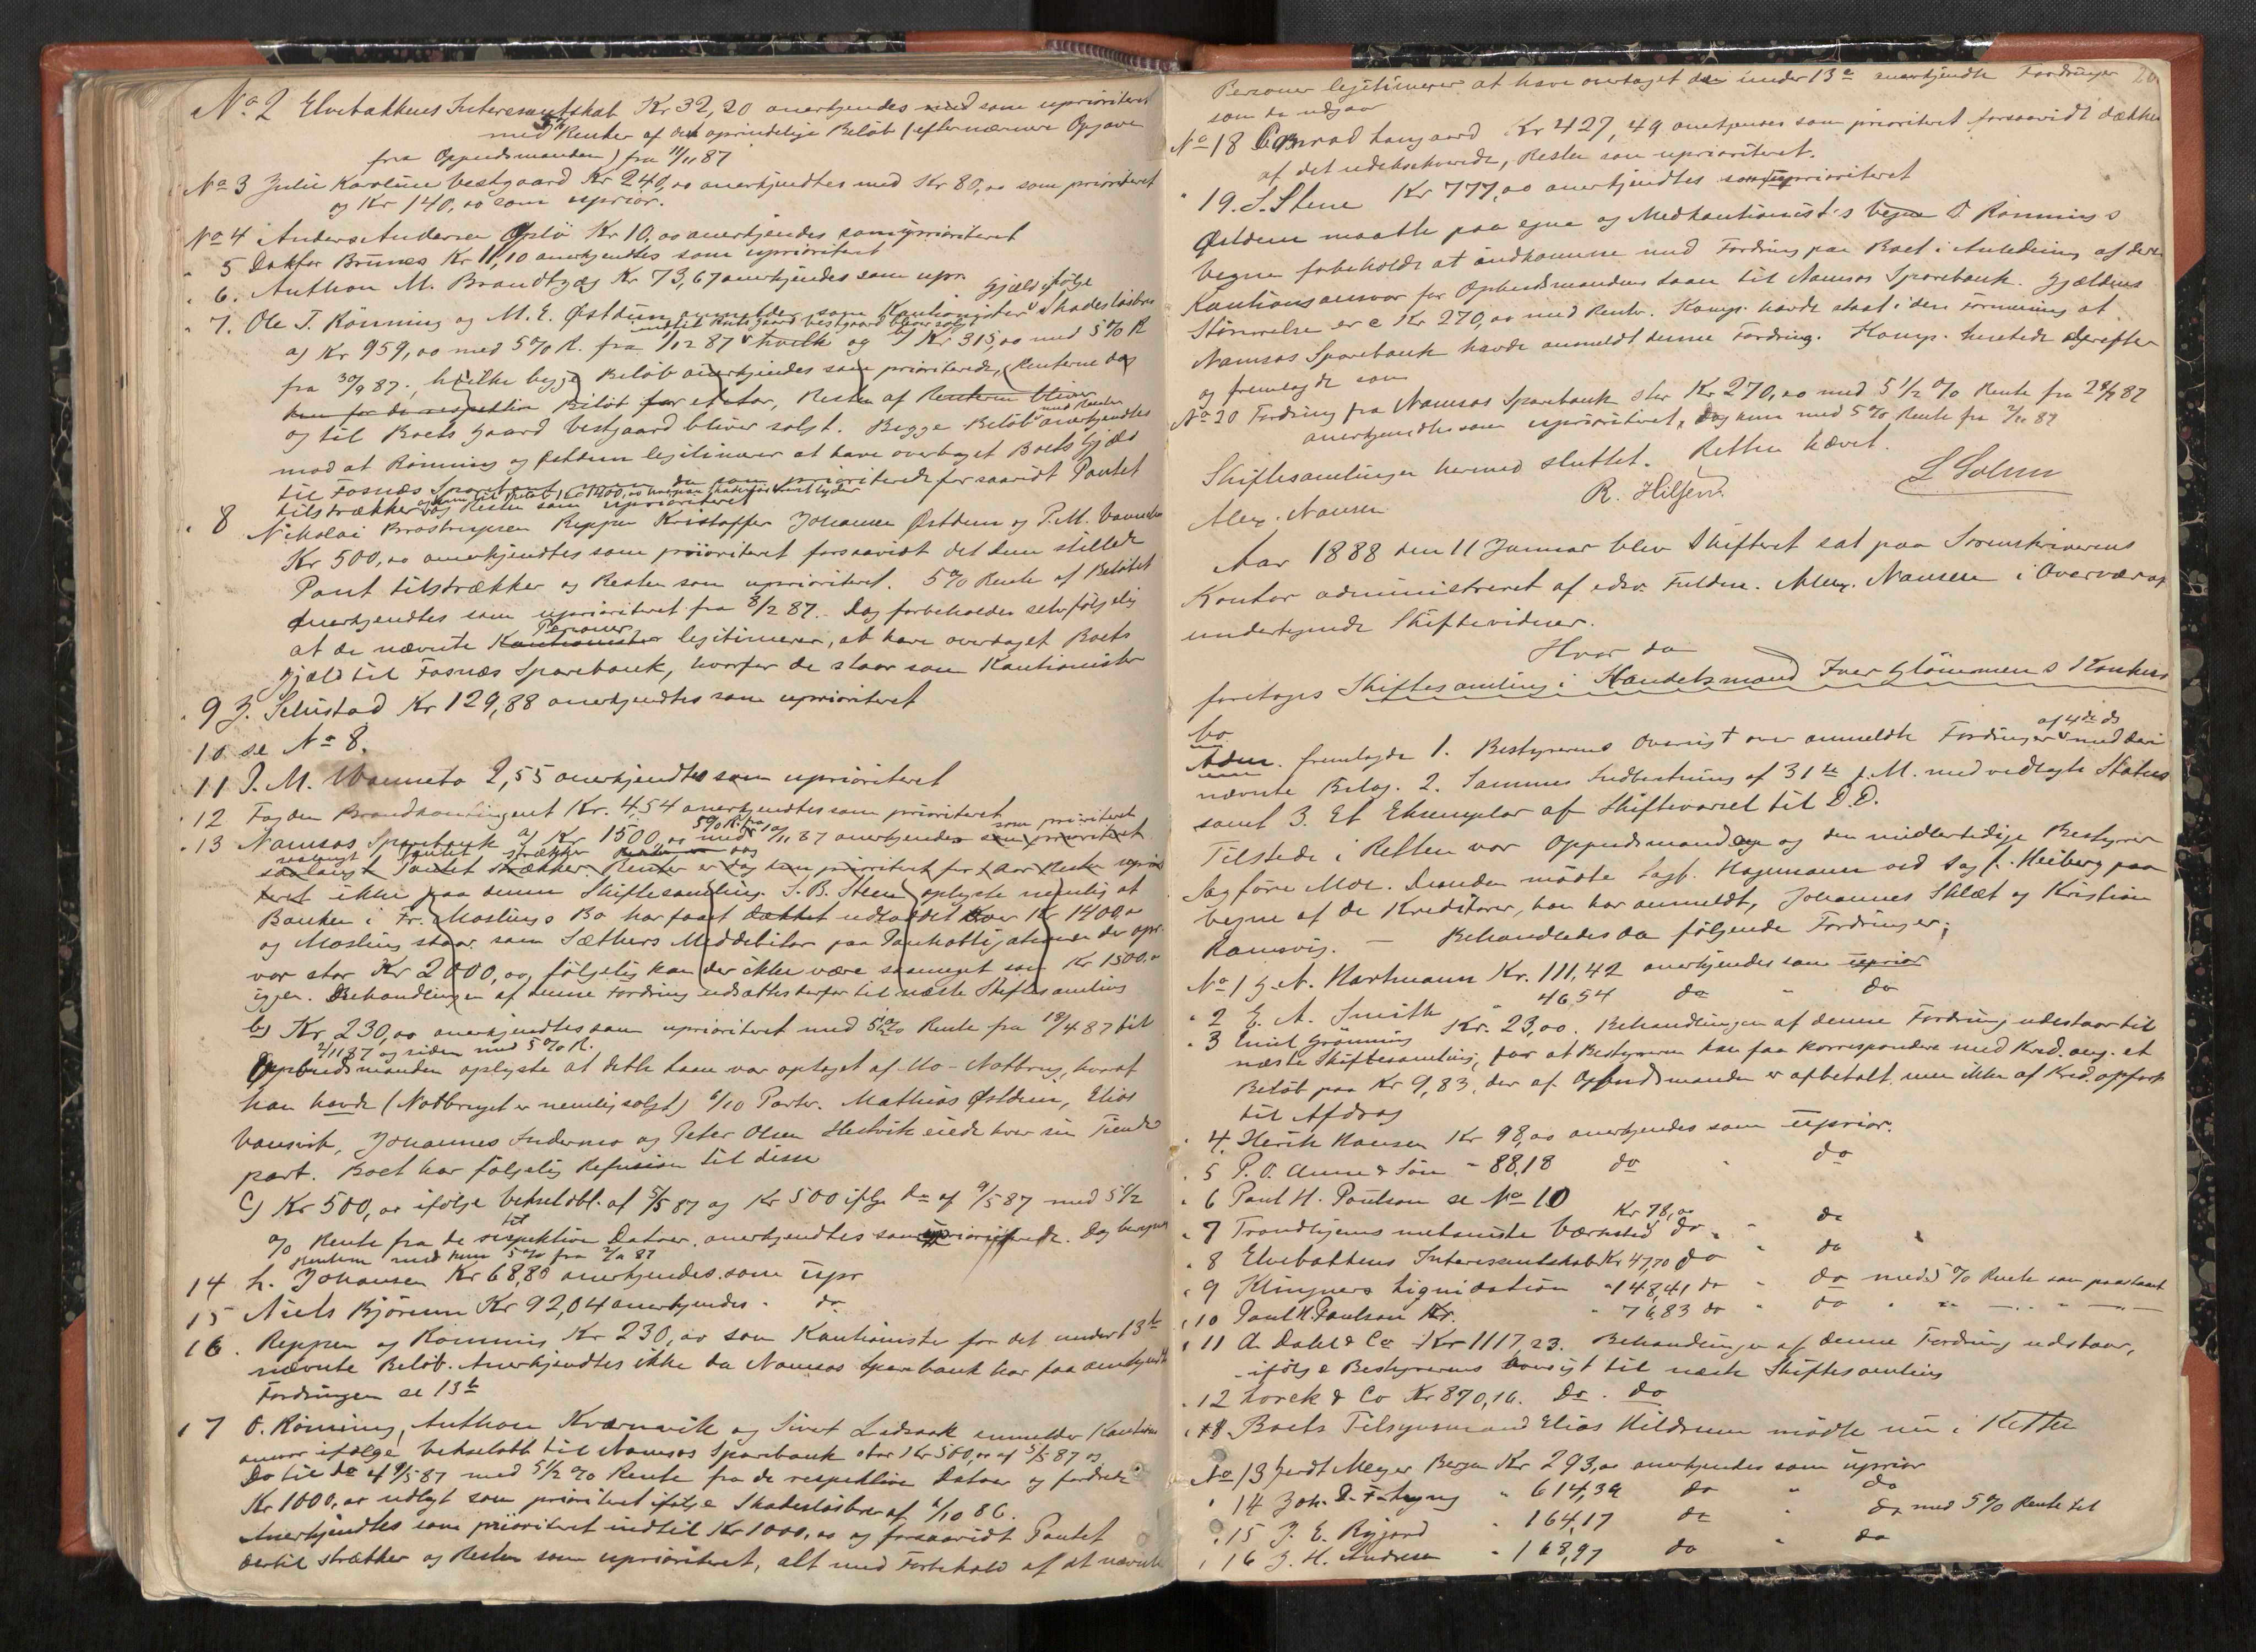 No 2 Elvebakkens Interesentskab Kr 32,20 anerkjendes med som uprioriteret
med 5% Renter af det oprindelige Beløb (efter nærmere Opgave
fra Opbudsmanden) fra 11/11 87
No 3 Julie Karoline Vestgaard Kr 240,00 anerkjendtes med Kr 80,00 som prioriteret
og Kr 140,00 som uprior.
No 4 Anders Andersen Opslö Kr 10,00 anerkjendes som uprioriteret
" 5 Doktor Brunes Kr 11,10 anerkjendtes som uprioriteret
" 6. Anthon M. Brandtzæg Kr 73,67 anerkjendes som upr.
" 7. Ole T. Rönning og M. E. Östduun anmelder som Kautionister Gjæld ifölge Skadeslösbrev
a) Kr 959,00 med 5% R. fra 1/12 87 indtil Boets Gaard Vestgaard bliver solgt hvilk og b) Kr 315,00 med 5% R
fra 30/9 87; hvilke begge Beløb anerkjendes som prioriterede, Renterne dog
kun for de respektive Beløb for et Aar, Resten af Renterne bliver
og til Boets Gaard Vestgaard bliver solgt. Begge Beløb med Renter anerkjendtes
mod at Rönning og Östduun legitimerer at have overtaget Boets Gjæld
til Fosnæs Sparebank, men da som prioriterede forsaavidt Pantet
tilstrækker og Resten som uprioriteret
" 8 Nikolai Brostrupsen Reppen Kristoffer Johansen Östduun og P. M. Vannebo
Kr 500,00 anerkjendtes som prioriteret forsaavidt det dem stillede
Pant tilstrækker og Resten som uprioriteret. 5% Rente af Beløbet
anerkjendtes som uprioriteret fra 8/2 87. Dog forbeholdes selvfölgelig
at de nævnte Kautionister Personer legitimerer, at have overtaget Boets
Gjæld til Fosnæs Sparebank, hvorfor de staar som Kautionister
" 9 J. Selnstad Kr 129,88 anerkjendtes som uprioriteret
" 10 se No 8.
" 11 P. M. Wanneto 2,55 anerkjendtes som uprioriteret
" 12 Fogden Brandkontingent Kr. 4,54 anerkjendtes som prioriteret
" 13 Namsos Sparebank a) Kr 1500,00 med 5% R. fra 10/11 87 anerkjendes som prioriteret som prioriteret
saalangt Pantet strækker. Renter er dog kun prioriteret for 1 Aar Resten uprio
teret ikke paa denne Skiftesamling. S. B. Steen oplyste nemlig at
Banken i Fr. Moslings Bo har faaet dækket udloddet over Kr 1400,00
og Mosling staar som Sæthers Meddebitor paa Panteobligationen der opr.
var stor Kr 2000,00, fölgelig kan der ikke være saameget som Kr 1500,00
igjen. Behandlingen af denne Fordring udsattes derfor til næste Skiftesamling
b) Kr 230,00 anerkjendtes som uprioriteret med 5½% Rente fra 18/4 87 til
2/11 87 og siden med 5% R.
Opbudsmanden oplyste at dette Laan var optaget af Mo-Notbrug, hvoraf
han havde (Notbruget er nemlig solgt) 6/10 Parter. Mathias Östduun, Elias
Vansvik, Johannes Indermo og Peter Olsen Hestvik eiede hver sin Tiende
part. Boet har fölgelig Refusion til disse
c) Kr 500,00 ifölge Vekselobl. af 5/5 87 og Kr 500 ifölge Do af 9/5 87 med 5½
% Rente fra de respektive Datoer, anerkjendtes som uprioriterede. Dog beregnes
Renten med kun 5% fra 2/11 87
14 L. Johansen Kr 68,80 anerkjendes som upr
15 Niels Björum Kr 92,04 anerkjendes - do
16. Reppen og Rönning Kr 230,00 som Kautionister for det under 13 b
nævnte Beløb. Anerkjendtes ikke da Namsos Sparebank har faa anerkjendt
Fordringen se 13 b
17 O. Rönning, Anthon Kværnvik og Sivert Ledsaak anmelder Kautions
ansvar ifölge Vekselobl til Namsos Sparebank stor Kr 500,00 af 5/5 87 og
Do til Do af 9/5 87 med 5½% Rente fra de respektive Datoer og fordrede
Kr 1000,00 udlagt som prioriteret ifölge Skadeslösbrev af 1/10 86.
Anerkjendtes som prioriteret indtil Kr 1000,00 og forsaavidt Pantet
dertil strækker og Resten som uprioriteret, alt med Forbehold af at nævnte
Personer legitimerer at have overtaget den under 13 c anerkjendte Fordringer
som da udgaar
No 18 Conrad Langaard Kr 427,49 anerkjendes som prioriteret forsaavidt dækkes
af det udekskverede, Resten som uprioriteret.
" 19. S. Stene Kr 777,00 anerkjendtes som uprioriteret
Östduun maatte paa egne og Medkautionist's Vegne O Rönnings
Vegne forbeholde at indkomme med Fordring paa Boet i Anledning af deres
Kautionsansvar for Opbudsmandens Laan til Namsos Sparebank. Gjældens
Störrelse er c Kr 270,00 med Renter. Komp. havde staat i den Formening at
Namsos Sparebank havde anmeldt denne Fordring. Komp. henstede derefter
og fremlagde som
No 20 Fordring fra Namsos Sparebank stor Kr 270,00 med 5½% Rente fra 28/7 87
anerkjendtes som uprioriteret, dog kun med 5% Rente fra 2/11 87
Skiftesamlingen hermed sluttet. Retten hævet.
Alex. Nansen R. Hilsen L Solum
Aar 1888 den 11 Januar blev Skifteret sat paa Sorenskriverens
Kontor administreret af edsv. Fuldm. Alex. Nansen i Overvær af
undertegnede Skiftevidner.
Hvor da
foretages Skiftesamling i Handelsmand Iver Glömmens Konkurs
bo
Adm. fremlagde 1. Bestyrerens Oversigt over anmeldte Fordringer af 4de ds med deri
nævnte Bilag. 2. Sammes Indberetning af 31te f. M. med vedlagte Status
samt 3. Et Eksemplar af Skiftevarsel til D.D.
Tilstede i Retten var Opbudsmanden og den midlertidige Bestyrer
Sagförer Moe. Desuden mödte Sagf. Hagemann ved Sagf. Heiberg paa
Vegne af de Kreditorer, han har anmeldt, Johannes Sklæt og Kristian
Ramsvig. — Behandledes da følgende Fordringer;
No 1 G. A. Hartmann Kr. 111,42 anerkjendes som uprior
" 2 E. A. Smith " 46,54 do " do
" 3 Emil Grönning Kr. 23,00. Behandlingen af denne Fordring udestaar til
næste Skiftesamling, for at Bestyreren kan faa korrespondere med Kred. ang. et
Beløb paa Kr 9,83, der af Opbudsmanden er afbetalt, men ikke af Kred. opført
til Afdrag
" 4. Henrik Hansen Kr 98,00 anerkjendes som uprior.
" 5 P. O. Aune & Sön " 88,18 do " do
" 6 Paul H. Poulson se No 10
" 7 Trondhjems mekaniske Værksted Kr 78,00 do " do
" 8 Elvebakkens Interessentskab Kr 47,70 do " do
" 9 Klingners Liqvidation " 148,41 do " do med 5% Rente som paastaaet
" 10 Paul H. Poulson Kr. " 76,83 do " do " " — " — " —
" 11 A. Dahl & Co Kr 1117,23. Behandlingen af denne Fordring udstaar,
ifölge Bestyrerens Oversigt til næste Skiftesamling
" 12 Lorck & Co Kr 870,16. Do. do
Boets Tilsynsmand Elias Hildrum mödte nu i Retten
No 13 Gerdt Meyer Bergen Kr 293,00 anerkjendes som uprior
" 14 Joh. D. F. Lysng " 614,39 do " do
" 15 J. E. Rygjord " 164,17 do " do med 5% Rente til
" 16 J. H. Andresen " 168,97 do " do